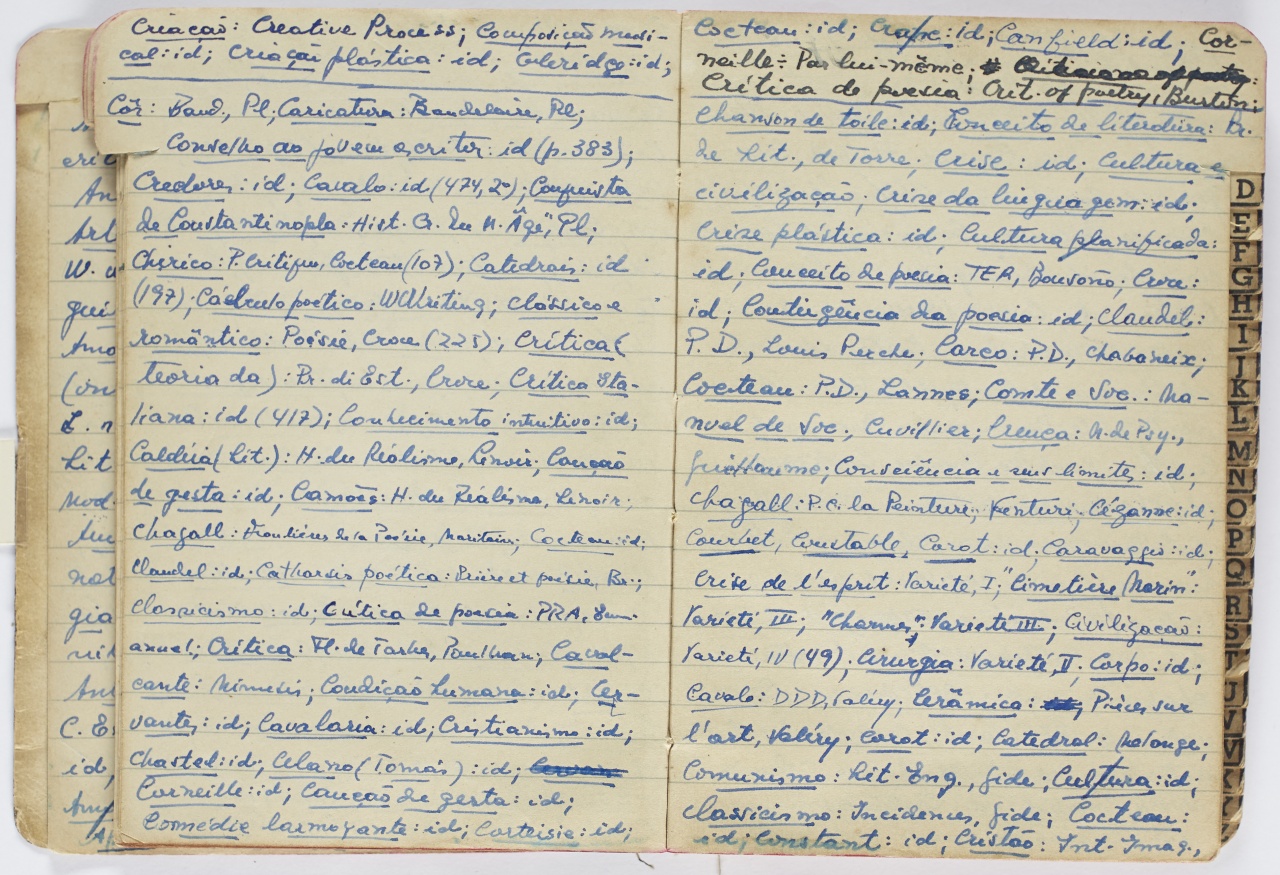 Criação: Creative Process; Composição musi-
cal: id; Criação plástica: id; Coleridge: id;
Côr: Baud., Pl; Caricatura: Baudelaire, Pl;
Conselho ao jovem escritor: id (p. 383);
Credores: id; Cavalo: id (474, 2º); Conquista
de Constantinopla: Hist. Cr. du M. Âge, Pl;
Chirico: P. Critique, Cocteau (107); Catedrais: id
(197); Cálculo poético: W Writing; clássico e
romântico: Poésie, Croce (225); Crítica (
teoria da): Br. di Est., Croce; Crítica Sta-
liana: id (417); Conhecimento intuitivo: id;
Caldéia (Lit.): H. du Réalisme, Lenoir; Canção
de gesta: id; Camões: H. du Réalisme, Lenoir;
Chagall: Frontières de la Poésie, Maritain; Cocteau: id;
Claudel: id; Catharsis poética: Prière et poésie, Br.;
Classicismo: id; Crítica de poesia: PRA, Emm-
anuel; Crítica: Fl. de Tarbes, Paulhan; Caval-
cante: Mimesis; Condição humana: id; Cer-
vantes: id; Cavalaria: id; Cristianismo: id;
Chastel: id; Celano (Tomás): id;
Corneille: id; Canção de gesta: id;
Comédie larmoyante: id; Corteisie: id;
Cocteau: id; Crane: id; Canfield: id; Cor-
neille: Par lui-même;
Crítica de poesia: Crit. of poetry, Burton;
Chanson de toile: id; Conceito de literatura: Pr.
de Lit., de Torre; Crise: id; Cultura e
civilização, Crise da linguagem: id;
Crise plástica: id; Cultura planificada:
id; Conceito de poesia: TER, Bousoño; Croce:
id; Contingência da poesia: id; Claudel:
P.D., Louis Perche; Carco: P.D., Chabaneix;
Cocteau: P.D., Lannes; Comte e Soc.: Ma-
nuel de Soc., Cuvillier; Crença: M. de Psy.,
Guillaume; Consciência e seus limites: id;
Chagall: P. c. la Peinture, Venturi; Cézanne: id;
Courbet, Constable, Corot: id; Caravaggio: id;
Crise de l'esprit: Varieté, I; "Cimetière Marin":
Varieté, III; "Charmes": Varieté III; Civilização:
Varieté, IV (49); Cirurgia: Varieté, V; Corpo: id;
Cavalo: DDD, Valéry; Cerâmica: Pièces sur
l'art, Valéry; Corot: id; Catedral: Melange;
Comunismo: Lit. Eng., Gide; Cultura: id;
Classicismo: Incidences, Gide; Cocteau:
id; Constant: id; Cristão: Int. Imag.,
D
E
F
G
H
I
J
K
L
M
N
O
P
Q
R
S
T
U
V